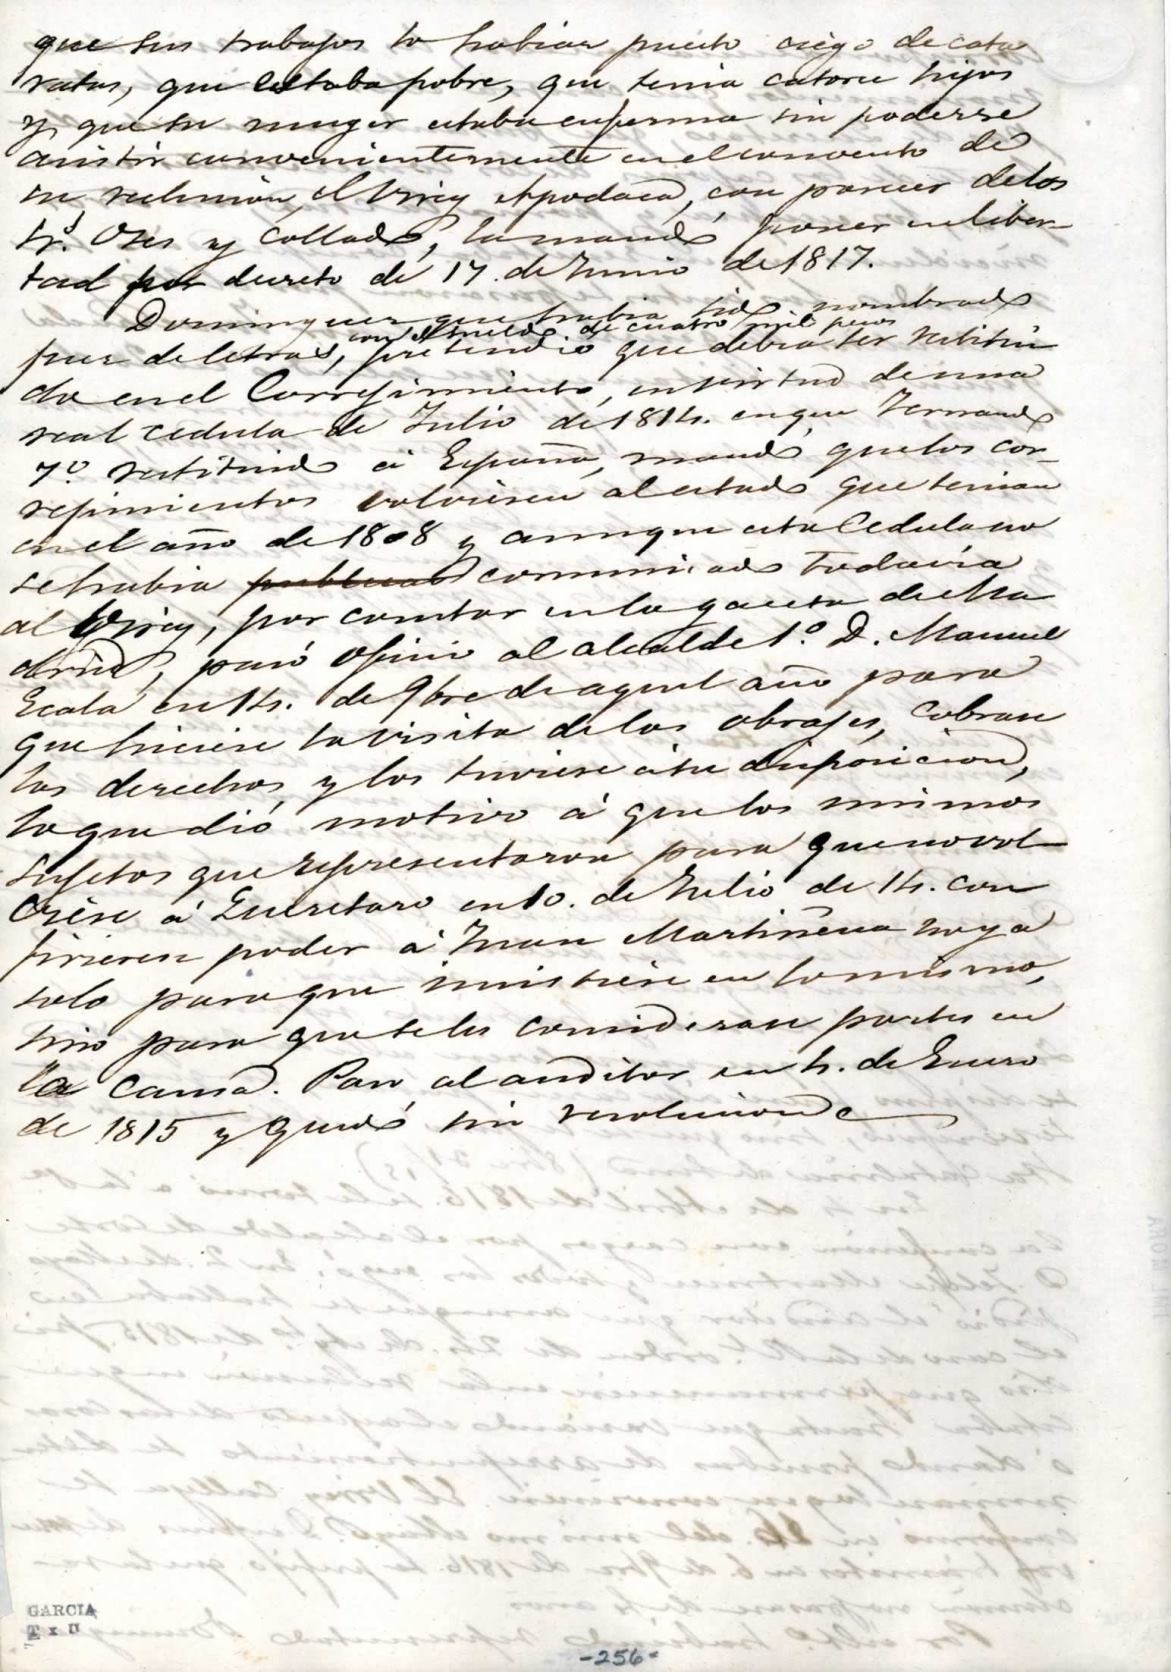 que sus trabajos lo habian puesto ciego de cata
ratas, que estaba pobre, que tenia catorce hijos
y que su muger estaba enferma sin poderse
asistir convenientemente en el convento de
su reclusion, el Virey Apodaca, con parecer de los
Sr.s Oses y Collado, la mandó poner en liber-
tad por decreto de 17. de Junio de 1817.
Dominguez que habia sido nombrado
con sueldo de cuatro mil pesos
juez de letras, pretendió que debia ser restitui
do en el Corregimiento, en virtud de una
real cedula de Julio de 1814. en que Fernando
7º. restituido á España, mandó que los cor-
regimientos volviesen al estado que tenian
en el año de 1808 y aunque esta Cedula no
se habia publicado comunicado todavia
al Virey, por constar en la gaceta de Ma
drid, pasó oficio al alcalde 1.º D. Manuel
Escala en 14. de 9bre de aquel año para
que hiciese la visita de los obrajes, cobrase
los derechos, y los tuviese á su disposicion,
lo que dió motivo á que los mismos
sujetos que representaron para que no vol-
viese á Queretaro en 10. de Julio de 14. con
firiesen poder á Juan Martiñena no ya
solo para que insistiese en lo mismo,
sino para que se les considerase partes en
la causa. Pasó al auditor en 4. de Enero
de 1815 y quedó sin resolucion
GARCIA
T x II
-256-